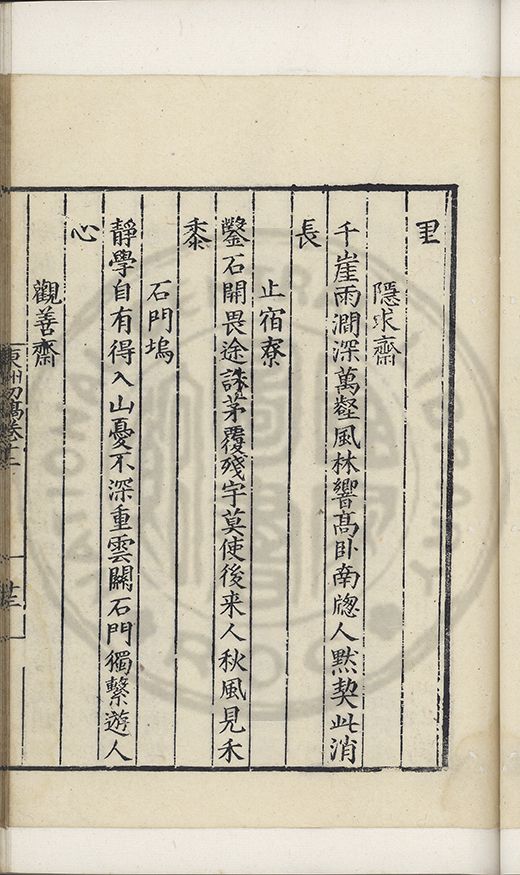 里
隱求齋
千崖雨澗深萬壑風林響高臥南牕人黙契此消
長
止宿寮
鑿石開畏途誅茅覆殘宇莫使後来人秋風見禾
黍
石門塢
靜學自有得入山憂不深重雲關石門獨繫遊人
心
觀善齋
東洲初稾卷十二